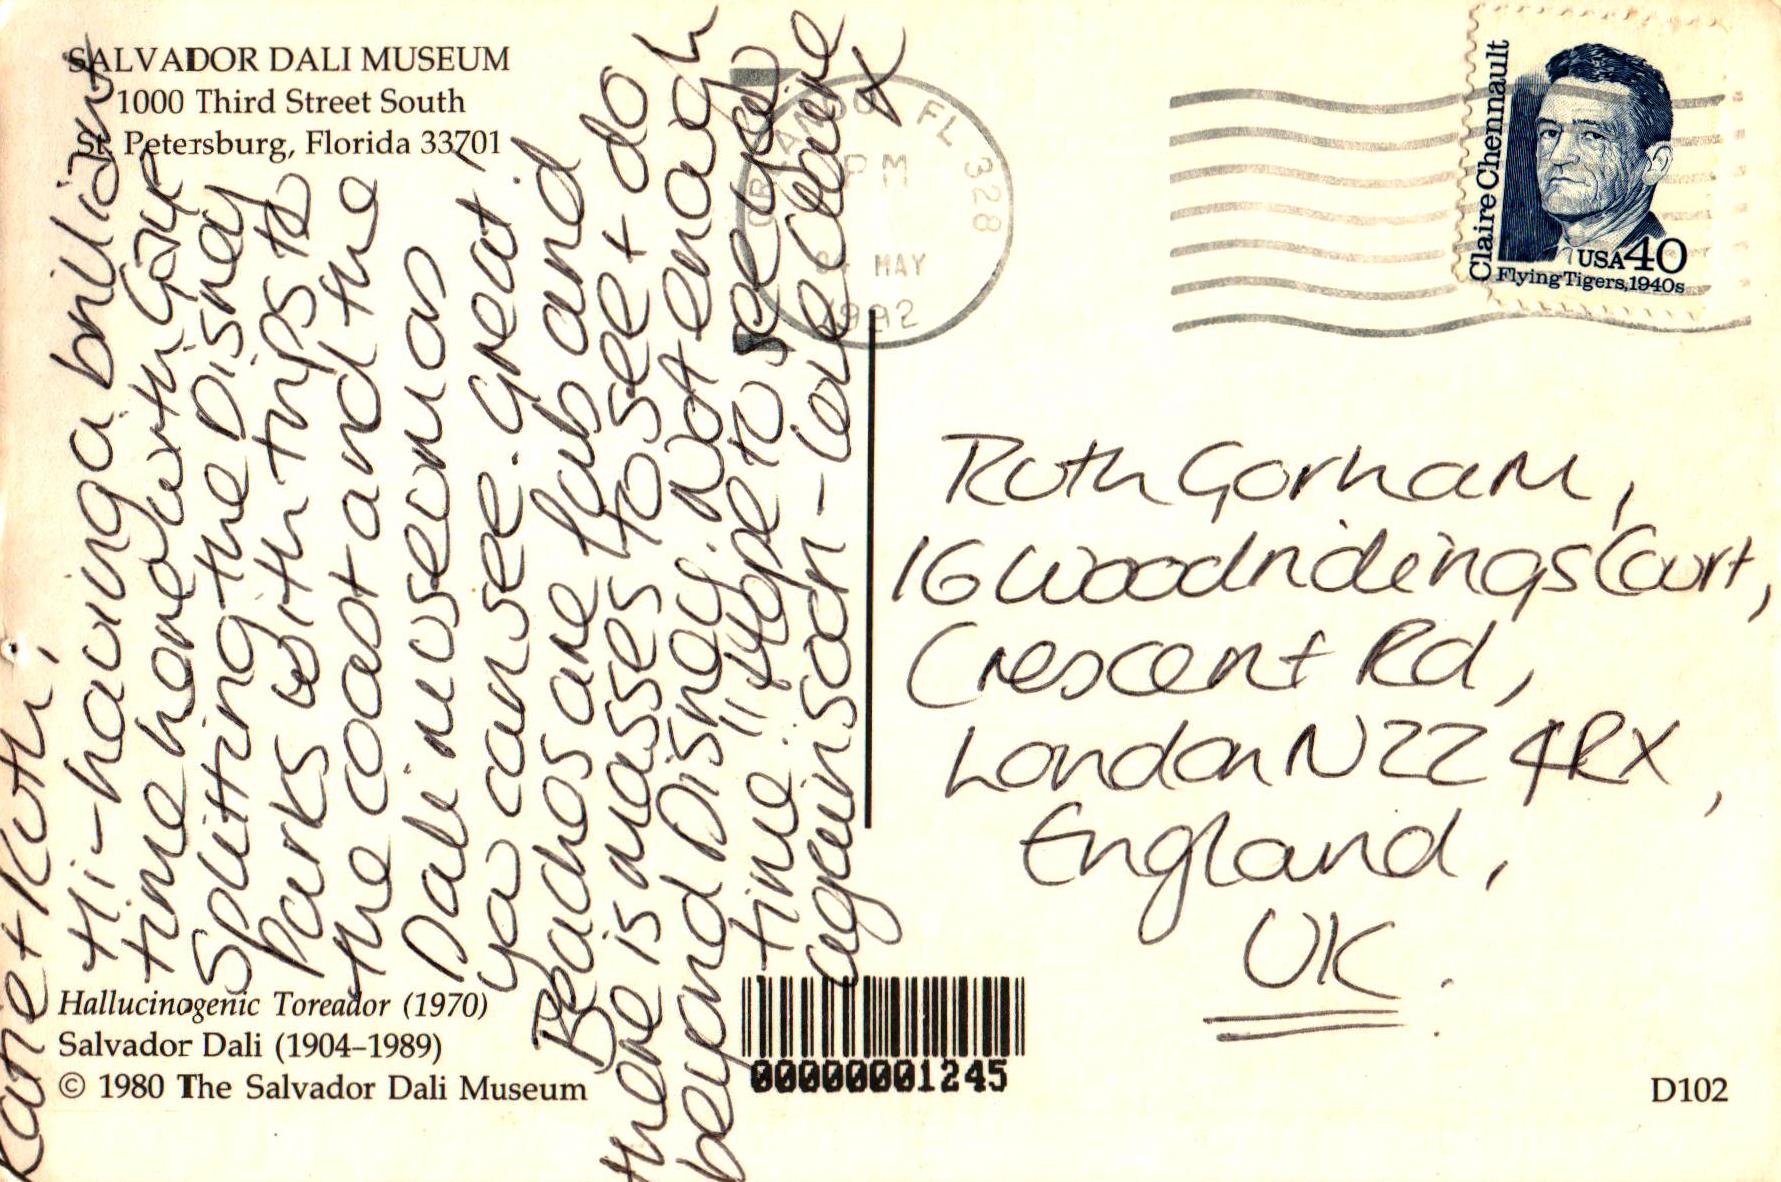 SALVADOR DALI MUSEUM
1000 Third Street South
St. Petersburg, Florida 33701
Hi - having a brilliant
time here with Gaye
Splitting the Disney
Parks with trips to
the coast and the
Dali museum as
you can see. Great
Beaches are fab and
there is masses to see + do
beyond Disney. Not enough
time!! Hope to see you
again soon - love Claire
X
ORLANDO FL 328
PM
MAY
1992
Claire Chennault
USA 40
Flying Tigers, 1940s
Ruth Gorham,
16 Woodridings Court,
Crescent Rd,
London N22 4RX,
England,
UK.
Hallucinogenic Toreador (1970)
Salvador Dali (1904–1989)
© 1980 The Salvador Dali Museum
00000001245
D102